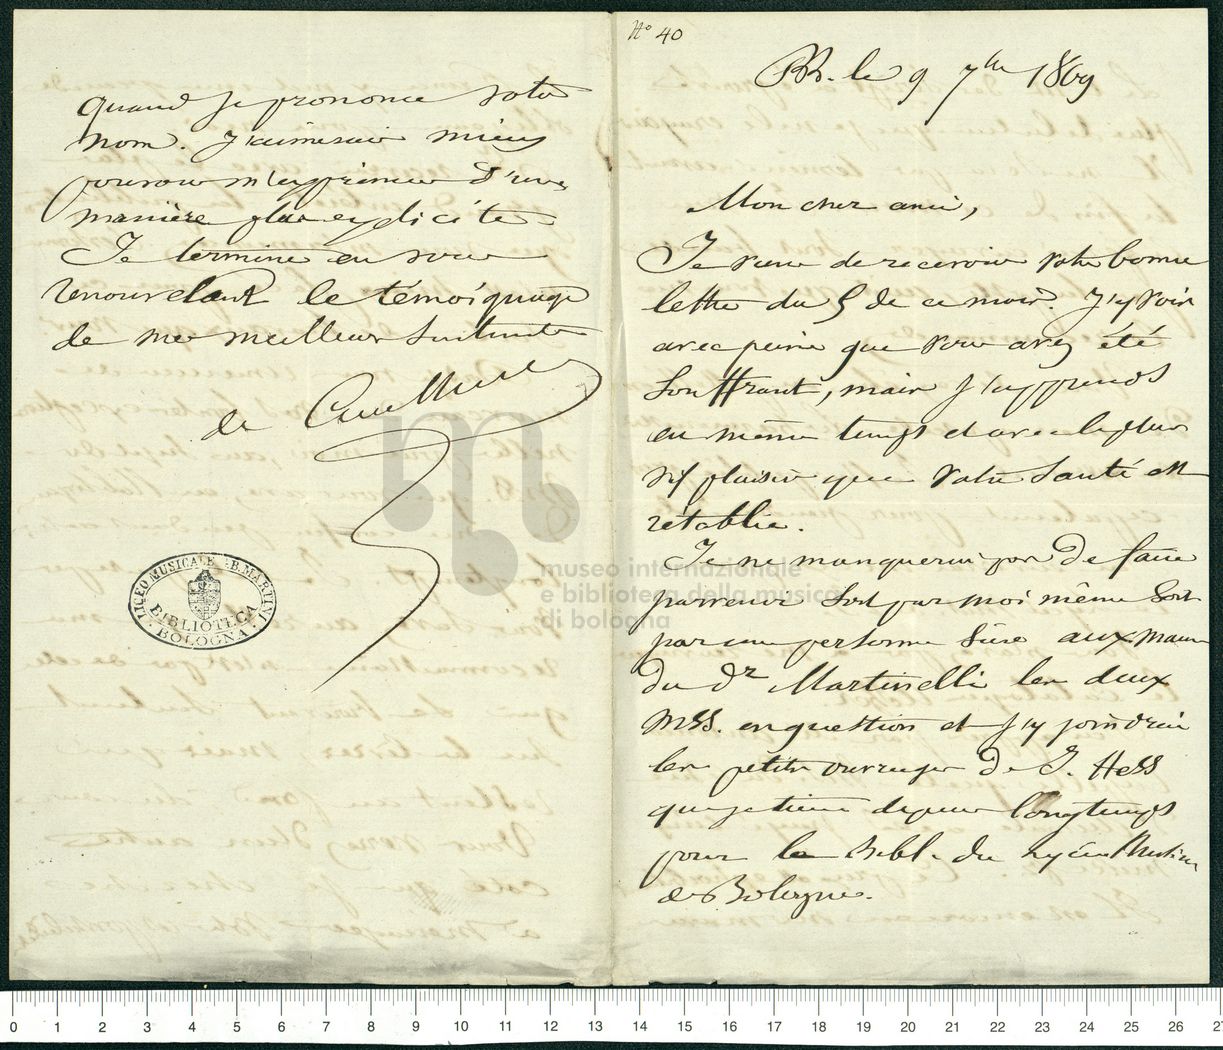 Nº 40
Br. le 9 7bre 1869
Mon cher ami,
Je viens de recevoir votre bonne
lettre du 5 de ce mois. J'y vois
avec peine que vous avez été
souffrant, mais j'apprends
en même temps et avec le plus
vif plaisir que votre santé est
rétablie.
Je ne manquerai pas de faire
parvenir soit par moi même soit
par une personne sûre aux mains
du Dr Martinelli les deux
mss. en question et j'y joindrai
les petits ouvrages de J. Hess
que je tiens depuis longtemps
pour la Bibl. du Lycée Musical
de Bologne.
quand je prononce votre
nom. J'aimerais mieux
pouvoir m'exprimer d'une
manière plus explicite.
Je termine en vous
renouvelant le témoignage
de mes meilleurs sentiments
de
LICEO MUSICALE G.B. MARTINI
BIBLIOTECA
BOLOGNA
museo internazionale
e biblioteca della musica
di bologna
0 1 2 3 4 5 6 7 8 9 10 11 12 13 14 15 16 17 18 19 20 21 22 23 24 25 26